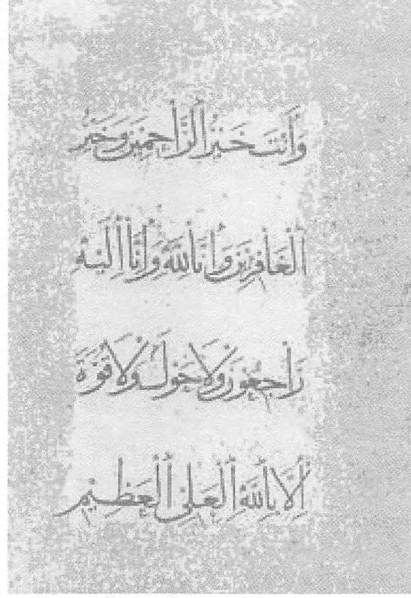 وَأَنتَ خَيْرُ ٱلرَّاحِمِينَ وَخَيْرُ
ٱلْغَافِرِينَ وَأَنَا لِلَّهِ وَأَنَّا إِلَيْهِ
رَاجِعُونَ وَلَا حَوْلَ وَلَا قُوَّةَ
إِلَّا بِٱللَّهِ ٱلْعَلِيِّ ٱلْعَظِيمِ